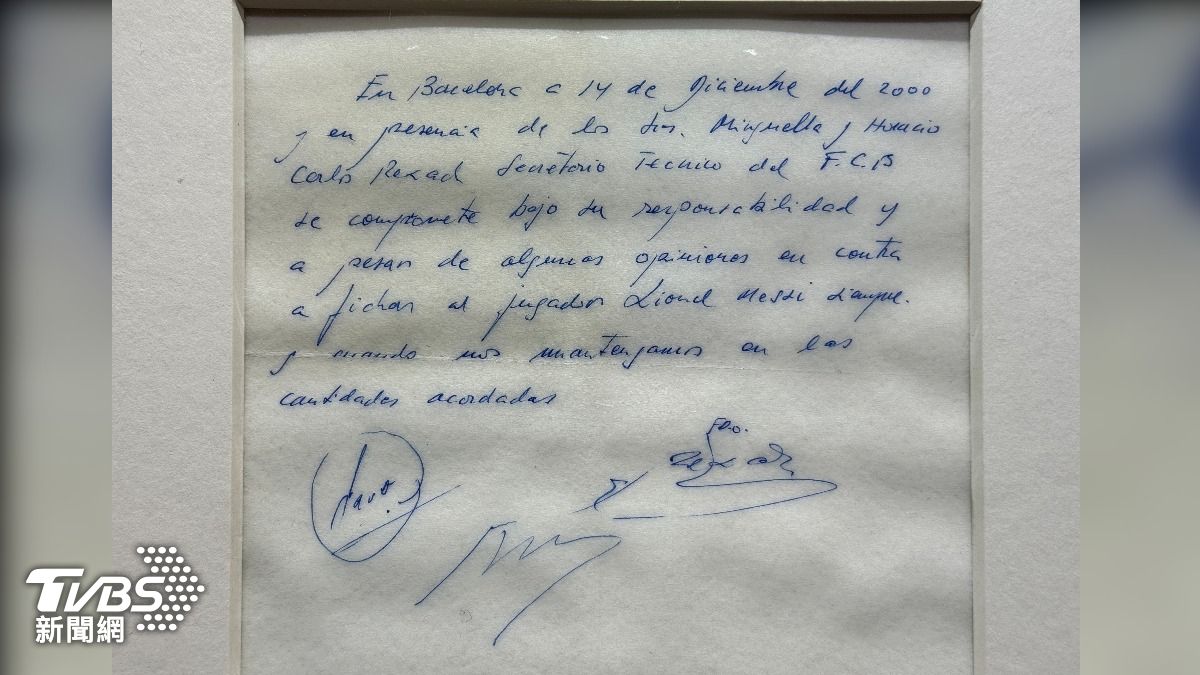 En Barcelona a 14 de Diciembre del 2000
y en presencia de los Srs. Minguella y Horacio
Carlos Rexach Secretario Tecnico del F.C.B
se compromete bajo su responsabilidad y
a pesar de algunas opiniones en contra
a fichar al jugador Lionel Messi siempre.
y cuando nos mantengamos en las
cantidades acordadas
Fdo.
TVBS
新聞網